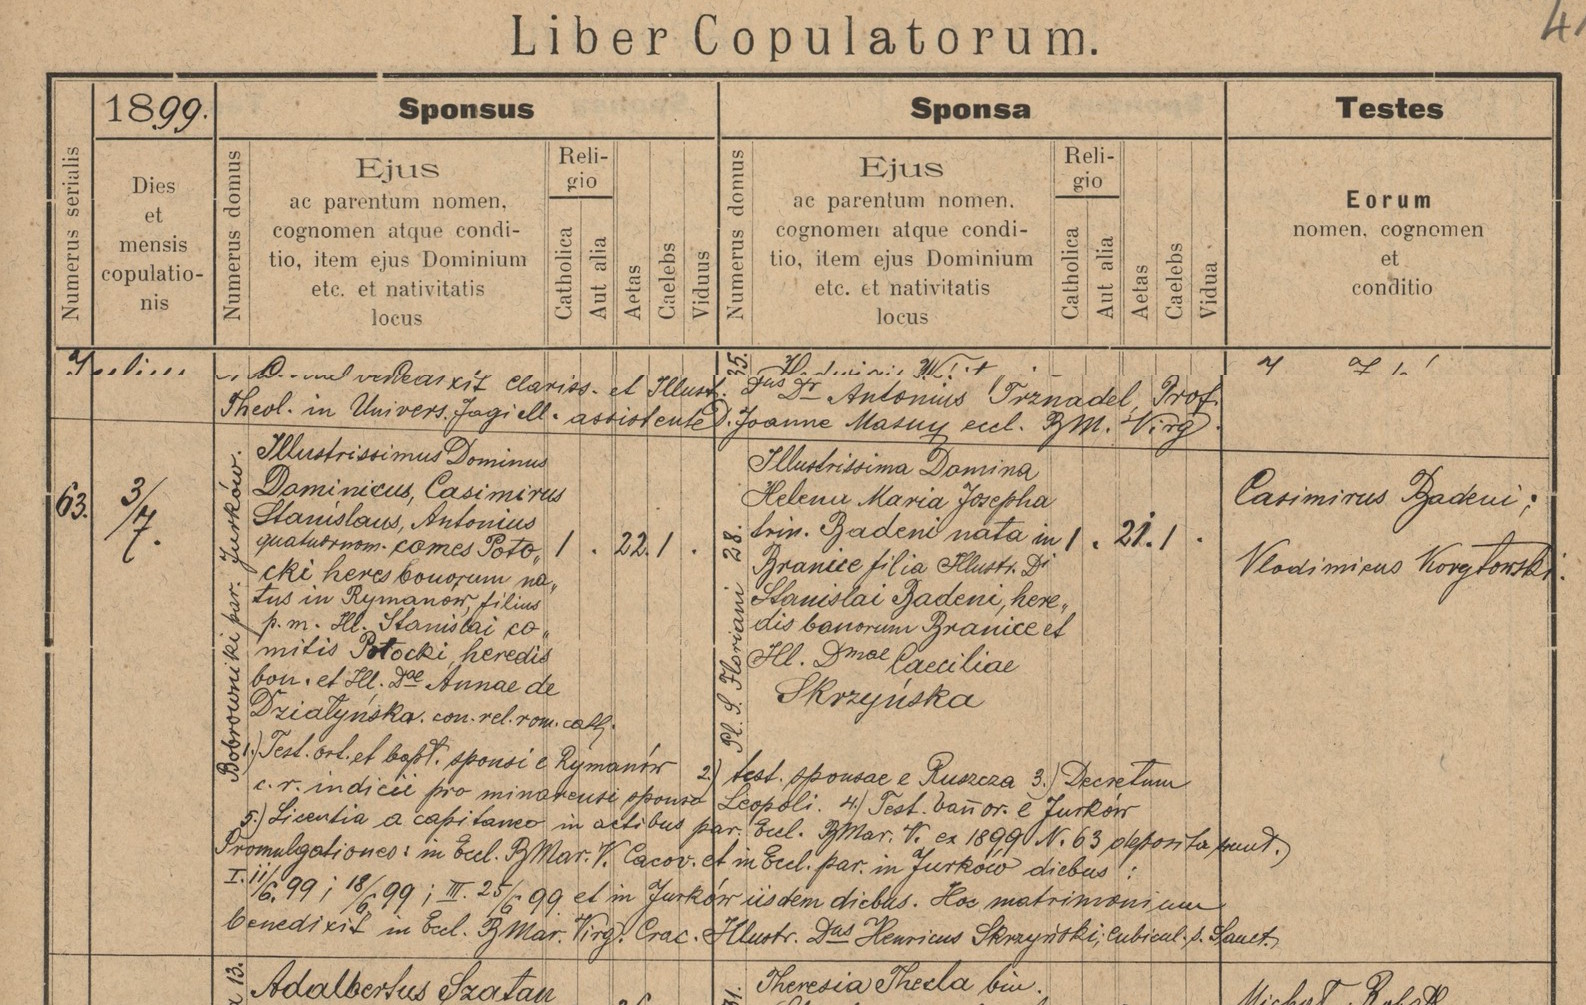 Liber Copulatorum.
1899.
Sponsus
Sponsa
Testes
Numerus serialis
Dies
et
mensis
copulatio-
nis
Numerus domus
Ejus
ac parentum nomen,
cognomen atque condi-
tio, item ejus Dominium
etc. et nativitatis
locus
Reli-
gio
Catholica
Aut alia
Aetas
Caelebs
Viduus
Numerus domus
Ejus
ac parentum nomen.
cognomen atque condi-
tio, item ejus Dominium
etc. et nativitatis
locus
Reli-
gio
Catholica
Aut alia
Aetas
Caelebs
Vidua
Eorum
nomen, cognomen
et
conditio
35.
clariss. et Illustr. Dus Dr Antonius Trznadel, Prof.
Theol. in Univers. Jagiell. assistente D. Joanne Masny eccl. BM. Virg.
63.
3/7.
Bobrowniki par. Jurków.
Illustrissimus Dominus
Dominicus, Casimirus
Stanislaus, Antonius
quatuornom. comes Poto„
cki heres bonorum na„
tus in Rymanow, filius
p. m. Ill. Stanislai co„
mitis Potocki, heredis
bon. et Ill. Dae Annae de
Działyńska. con. rel. rom. cath.
1 . 22. 1 .
Pl. S. Floriani 28.
Illustrissima Domina
Helena Maria Josepha
trin. Badeni nata in
Branice filia Illustr. Di
Stanislai Badeni, here„
dis bonorum Branice et
Ill. Dmae Caeciliae
Skrzyńska
1 . 21. 1 .
Casimirus Badeni;
Vlodimirus Korytowski.
1.) Test. ort. et bapt. sponsi e Rymanów 2.) test. sponsae e Ruszcza 3.) Decretum
c. r. iudicii pro minorensi sponso Leopoli. 4.) Test. bannor. e Jurków
5.) Licentia a capitaneo in actibus par. Eccl. BMar. V. ex 1899 N. 63 deposita sunt.)
Promulgationes: in Eccl. BMar. V. Cracov. et in Eccl. par. in Jurków diebus:
I. 11/6. 99; 18/6 99; III. 25/6 99 et in Jurków iisdem diebus. Hoc matrimonium
benedixit in Eccl. BMar. Virg. Crac. Illustr. Dus Henricus Skrzyński, cubicul. s. Sanct.
13.
Adalbertus Szatan
31.
Theresia Thecla bin.